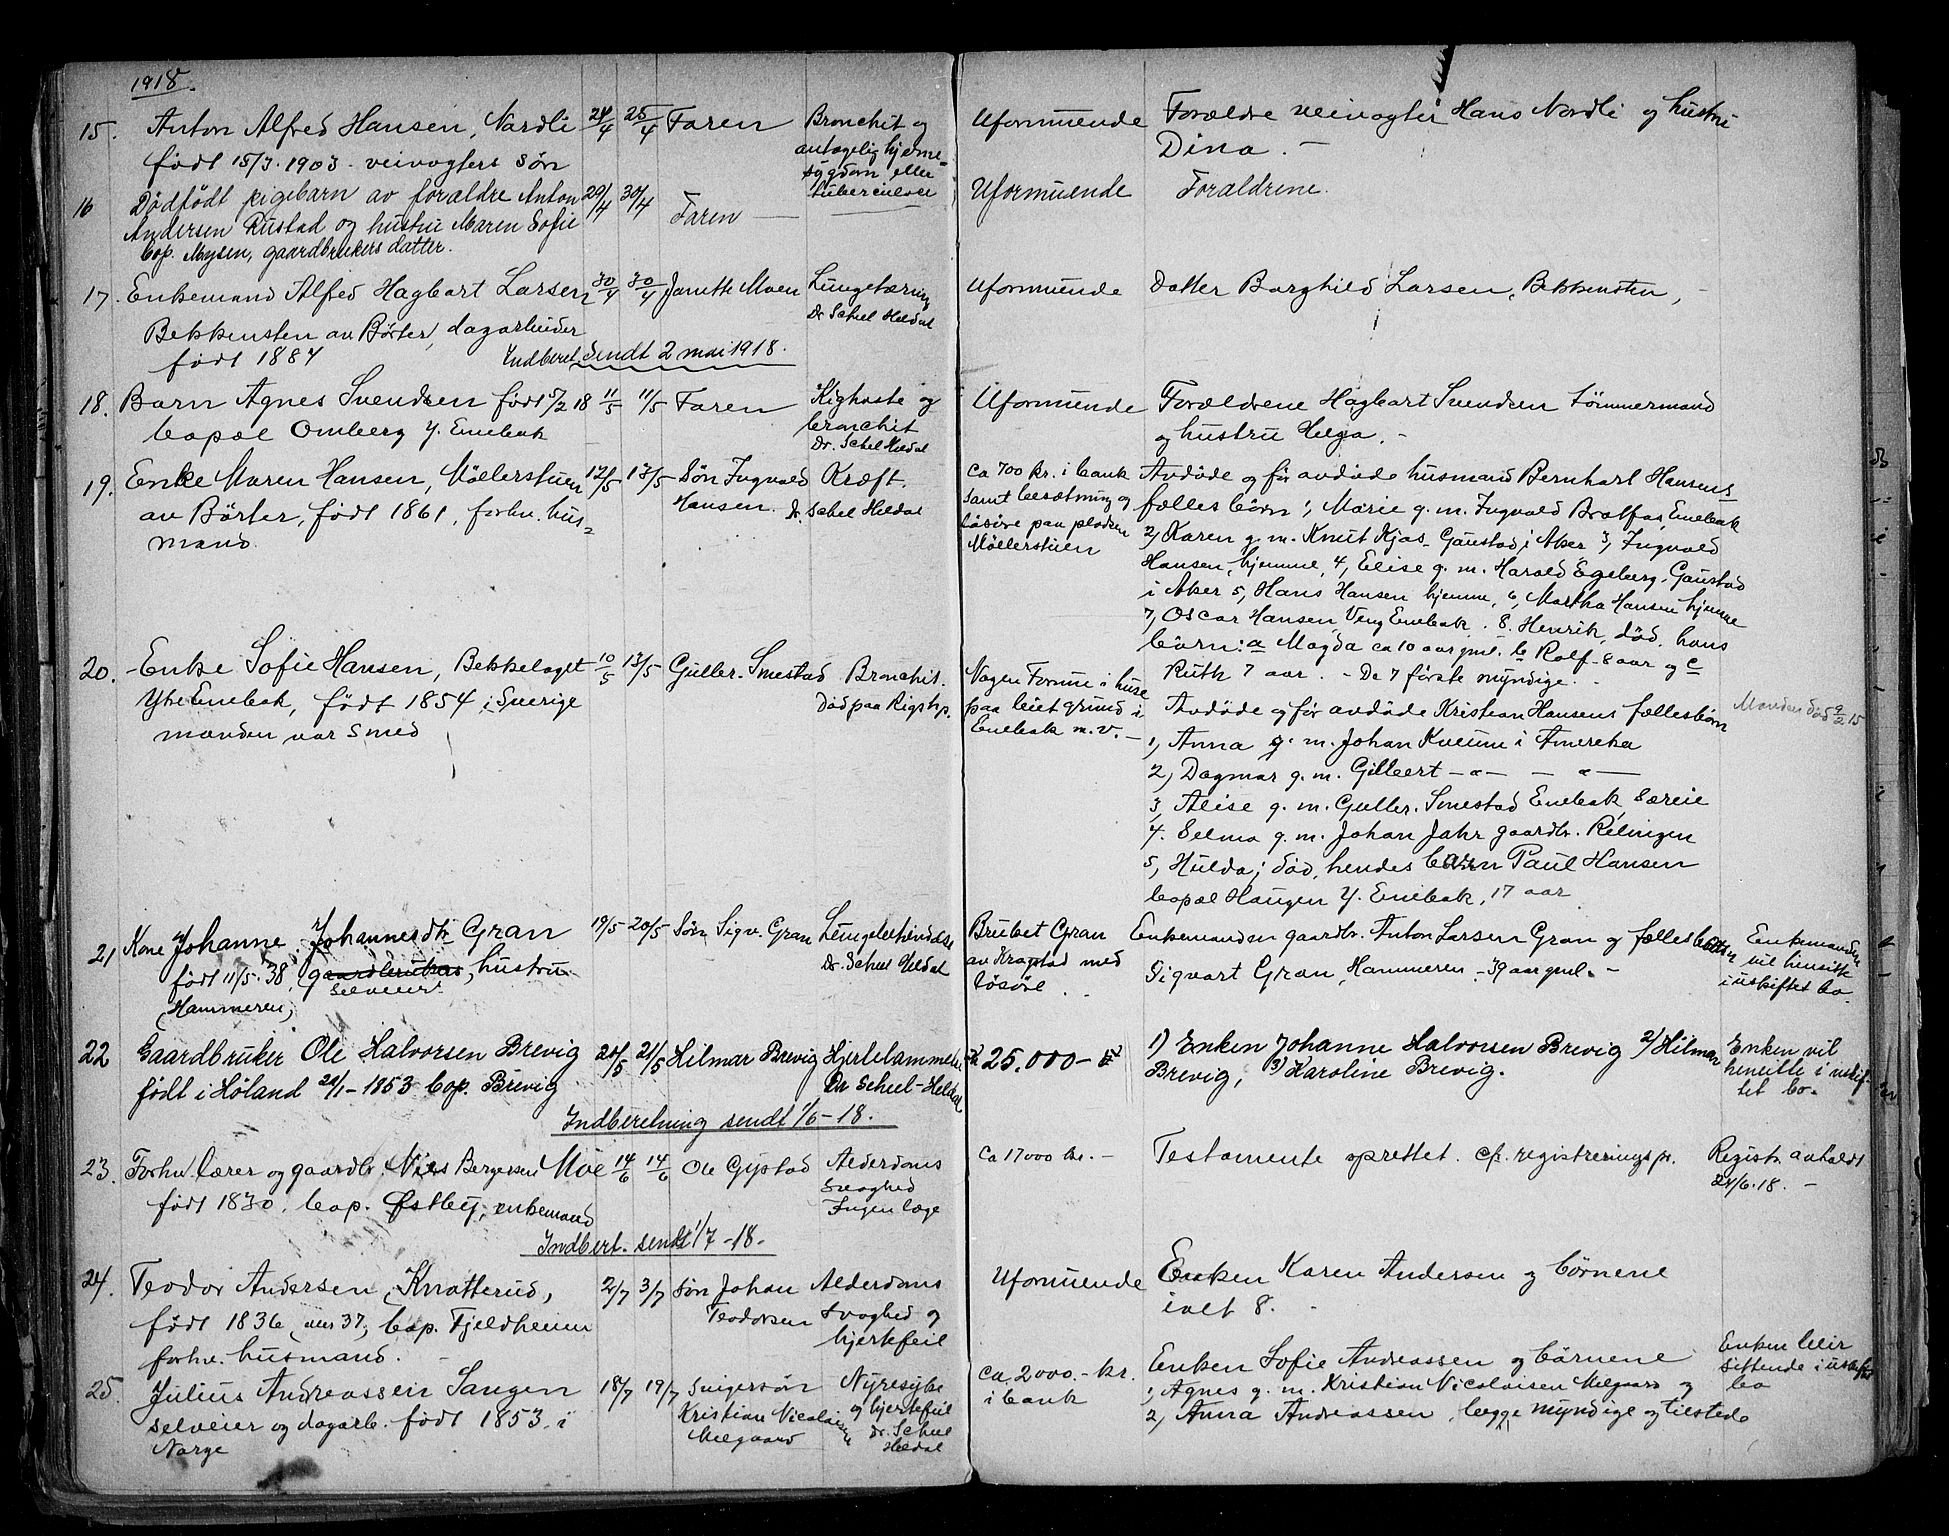 1918.
15. Anton Alfred Hansen, Nordli 24/4 25/4 Faren Bronchit og
født 15/3. 1903. veivogters søn antagelig hjerne-
sygdom eller
tuberculose
Uformuende Forældre veivogter Hans Nordli og hustru
Dina. -
16 Dødfødt pigebarn av forældre Anton 29/4 30/4 Faren
Andersen Rustad og hustru Maren Sofie
bop. Mysen, gaardbrukers datter.
Uformuende Forældrene.
17. Enkemand Alfred Hagbart Larsen 30/4 30/4 Janette Moen Lungetæring
Bekkensten av Börter, dagarbeider Dr Scheel Heldal
født 1887
Uformuende Datter Borghild Larsen, Bekkensten, -
Indberet. Sendt 2 mai 1918.
18. Barn Agnes Svendsen født 5/2 18 11/5 11/5 Faren Kighoste og
bopæl Omberg Y. Enebak bronchit
Dr. Scheel Heldal
Uformuende Forældrene Hagbart Svendsen tømmermand
og hustru Helga. -
19. Enke Maren Hansen, Möllerstuen 12/5 13/5 Søn Ingvald Kræft.
av Börter, født 1861, forhv. hus= Hansen. Dr. Scheel Heldal
mand.
Ca 700 kr. i bank
samt besætning og
løsøre paa pladsen
Møllerstuen
Avdøde og før avdøde husmand Bernhart Hansens
fælles børn: 1, Marie g. m. Ingvald Bratfos, Enebak
2, Karen g. m. Knut Kjos Gaustad i Aker 3, Ingvald
Hansen, hjemme, 4, Elise g. m. Harald Egeberg, Gaustad
i Aker 5, Hans Hansen hjemme, 6, Martha Hansen hjemme
7, Oscar Hansen Veng Enebak. 8. Henrik, død. hans
børn: a Magda ca 10 aar gml. b Rolf 8 aar og c
Ruth 7 aar. - De 7 første myndige. -
20. Enke Sofie Hansen, Bekkelaget 10/5 13/5 Guller. Smestad Bronchit.
Ytre Enebak, født 1854, i Sverige Død paa Rigshp.
manden var smed
Nogen Formue i huse
paa leiet grund i
Enebak m. v. -
Avdøde og før avdøde Kristian Hansens fællesbørn
1, Anna g. m. Johan i Amerika
2, Dagmar g. m. Gilbert - " - - " -
3, Alise g. m. Guller. Smestad Enebak
4. Selma g. m. Johan Jahr gaardbr. Rælingen
5, Hulda, død, hendes barn Paul Hansen
bopæl Haugen Y. Enebak, 17 aar
Manden død 9/2 15
21 Kone Johanne Johannesdtr Gran 19/5 20/5 Søn Sigv. Gran Lungebetændelse
født 11/5. 38, gaardbrukers, hustru Dr. Scheel Heldal
selveier
(Hammeren)
Bruket Gran
av Kragstad med
løsøre
Enkemanden gaardbr. Anton Larsen Gran og fælles
Sigvart Gran, Hammeren - 39 aar gml. -
Enkemanden
vil hensitte
i uskiftet bo.
22 Gaardbruker Ole Halvorsen Brevig 20/5 21/5 Hilmar Brevig Hjertelammelse
født i Høland 20/1 - 1853 bop. Brevig Dr Scheel-Heldal
25.000 -
1) Enken Johanne Halvorsen Brevig 2) Hilmar
Brevig, 3) Karoline Brevig.
Enken vil
hensitte i uskif-
tet bo.
Indberetning sendt 1/6 - 18.
23. Forhv. lærer og gaardbr. Niels Bergersen Moe 14/6 14/6 Ole Gystad Alderdoms
født 1830, bop. Østby, enkemand svaghed
Ingen læge
Ca 17000 kr. -
Testamente oprettet. cfr. registreringspr.
Registr. avholdt
24/6. 18. -
Indbert. sendt 1/7 - 18.
24. Teodor Andersen, Knatterud, 2/7 3/7 Søn Johan Alderdoms
født 1836, bop. Fjeldheim Teodorsen svaghed og
forhv. husmand. hjertefeil
Uformuende Enken Karen Andersen og børnene
ialt 8.
25. Julius Andreassen Sangen 18/7 19/7 Svigersøn Nyresyke
selveier og dagarb. født 1853. i Kristian Nicolaisen og hjertefeil
Norge Melgaard Dr. Scheel
Heldal
Ca. 2000.- kr.
i bank
Enken Sofie Andreassen og børnene
1, Agnes g. m. Kristian Nicolaisen Melgaard og
2, Anna Andreassen, begge myndige og tilstede
Enken blir
sittende i uskiftet
bo